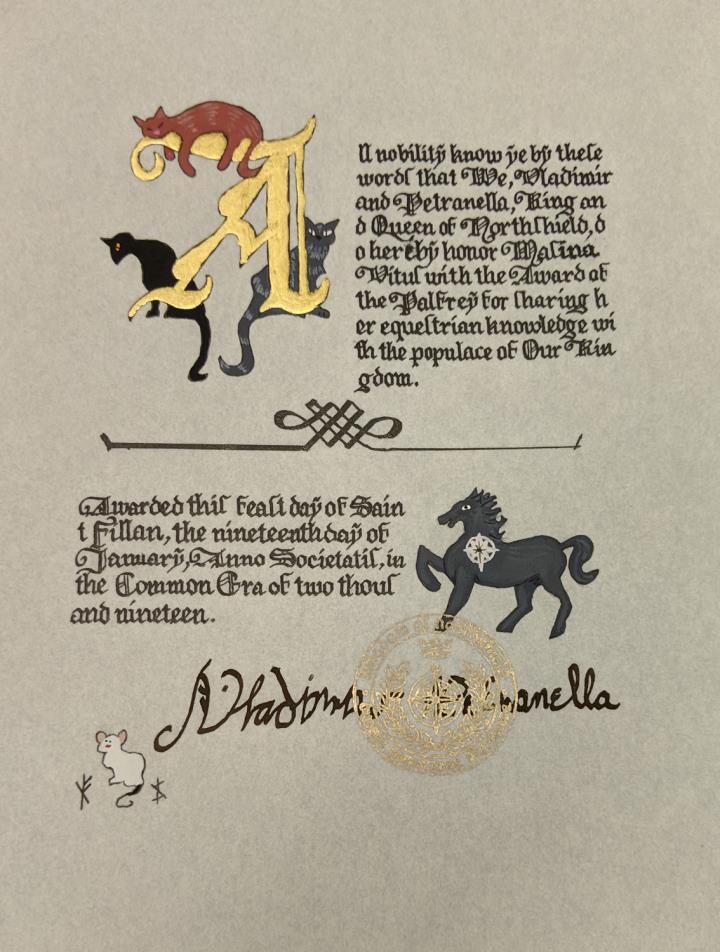 All nobilitÿ know ÿe bÿ these
words that We, Vladimir
and Petranella, King an
d Queen of Northshield, d
o herebÿ honor Masina
Vitus with the Award of
the Palfreÿ for sharing h
er equestrian knowledge wi
th the populace of Our Kin
gdom.
Awarded this feast daÿ of Sain
t Fillan, the nineteenth daÿ of
Januarÿ, Anno Societatis, in
the Common Era of two thous
and nineteen.
Vladimir Petranella